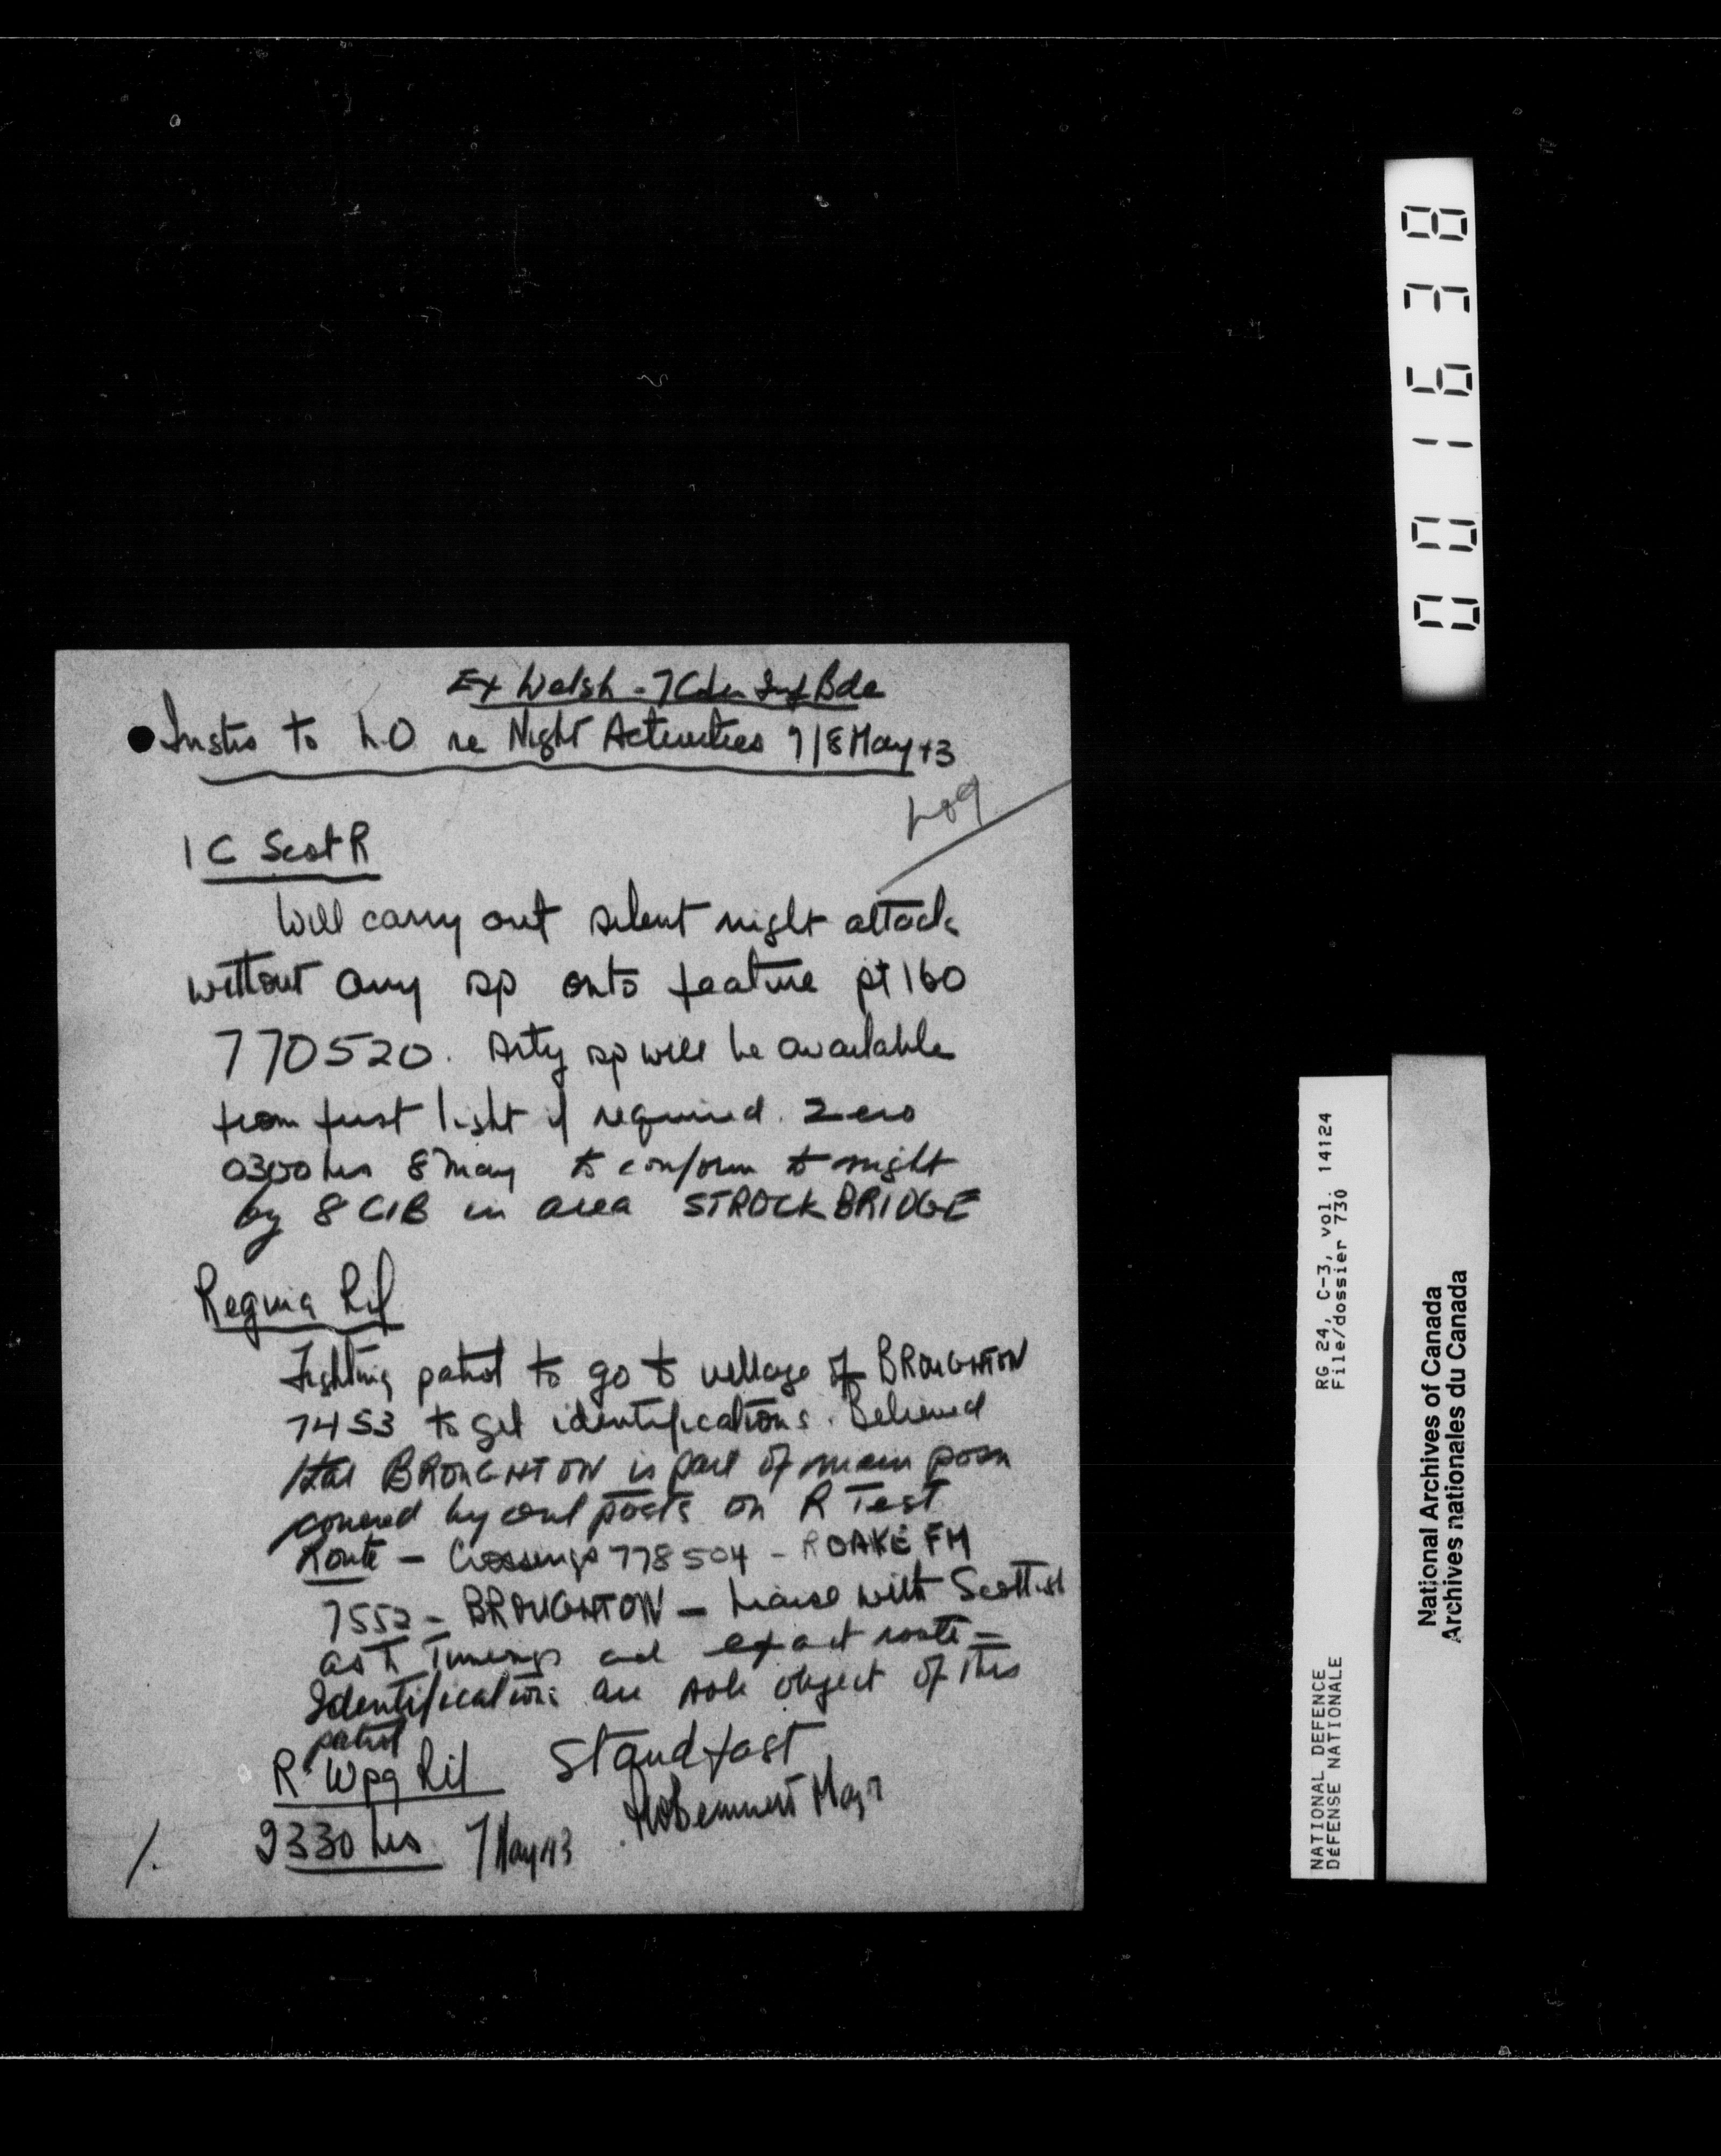 Ex Welsh - 7 Cdn Inf Bde
Instrs to LO re Night Activities 7/8 May 43
Log
1 C Scot R
Will carry out silent night attack
without any sp onto feature pt 160
770520. Arty sp will be available
from first light if required. Zero
0300 hrs 8 May to conform to night
by 8 CIB in area STROCKBRIDGE
Regina Rif
Fighting patrol to go to village of BROUGHTON
7453 to get identifications. Believed
that BROUGHTON is part of main posn
covered by outposts on R Test
Route - Crossings 778504 - ROAKE FM
7552 - BROUGHTON - Liaise with Scottish
as to Timings and exact route -
Identifications are sole object of this
patrol
R Wpg Rif Standfast
Major
2330 hrs 7 May 43
1.
001638
RG 24, C-3, vol. 14124
File/dossier 730
NATIONAL DEFENCE
DÉFENSE NATIONALE
National Archives of Canada
Archives nationales du Canada